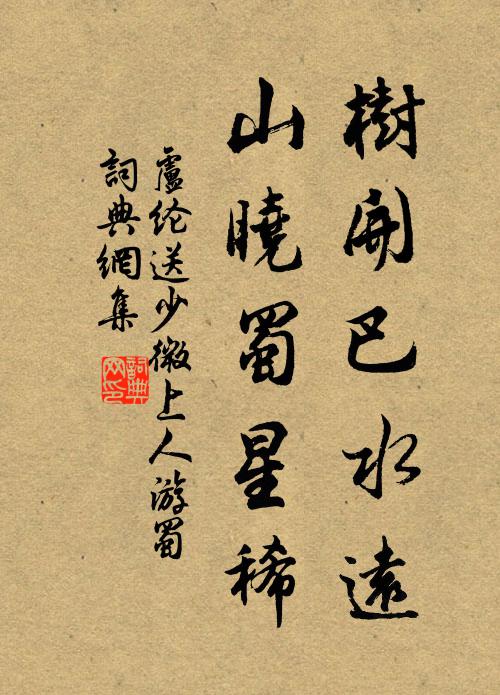 樹開巴水遠
山曉蜀星稀
盧纶送少微上人游蜀
詞典網集
詞典网印